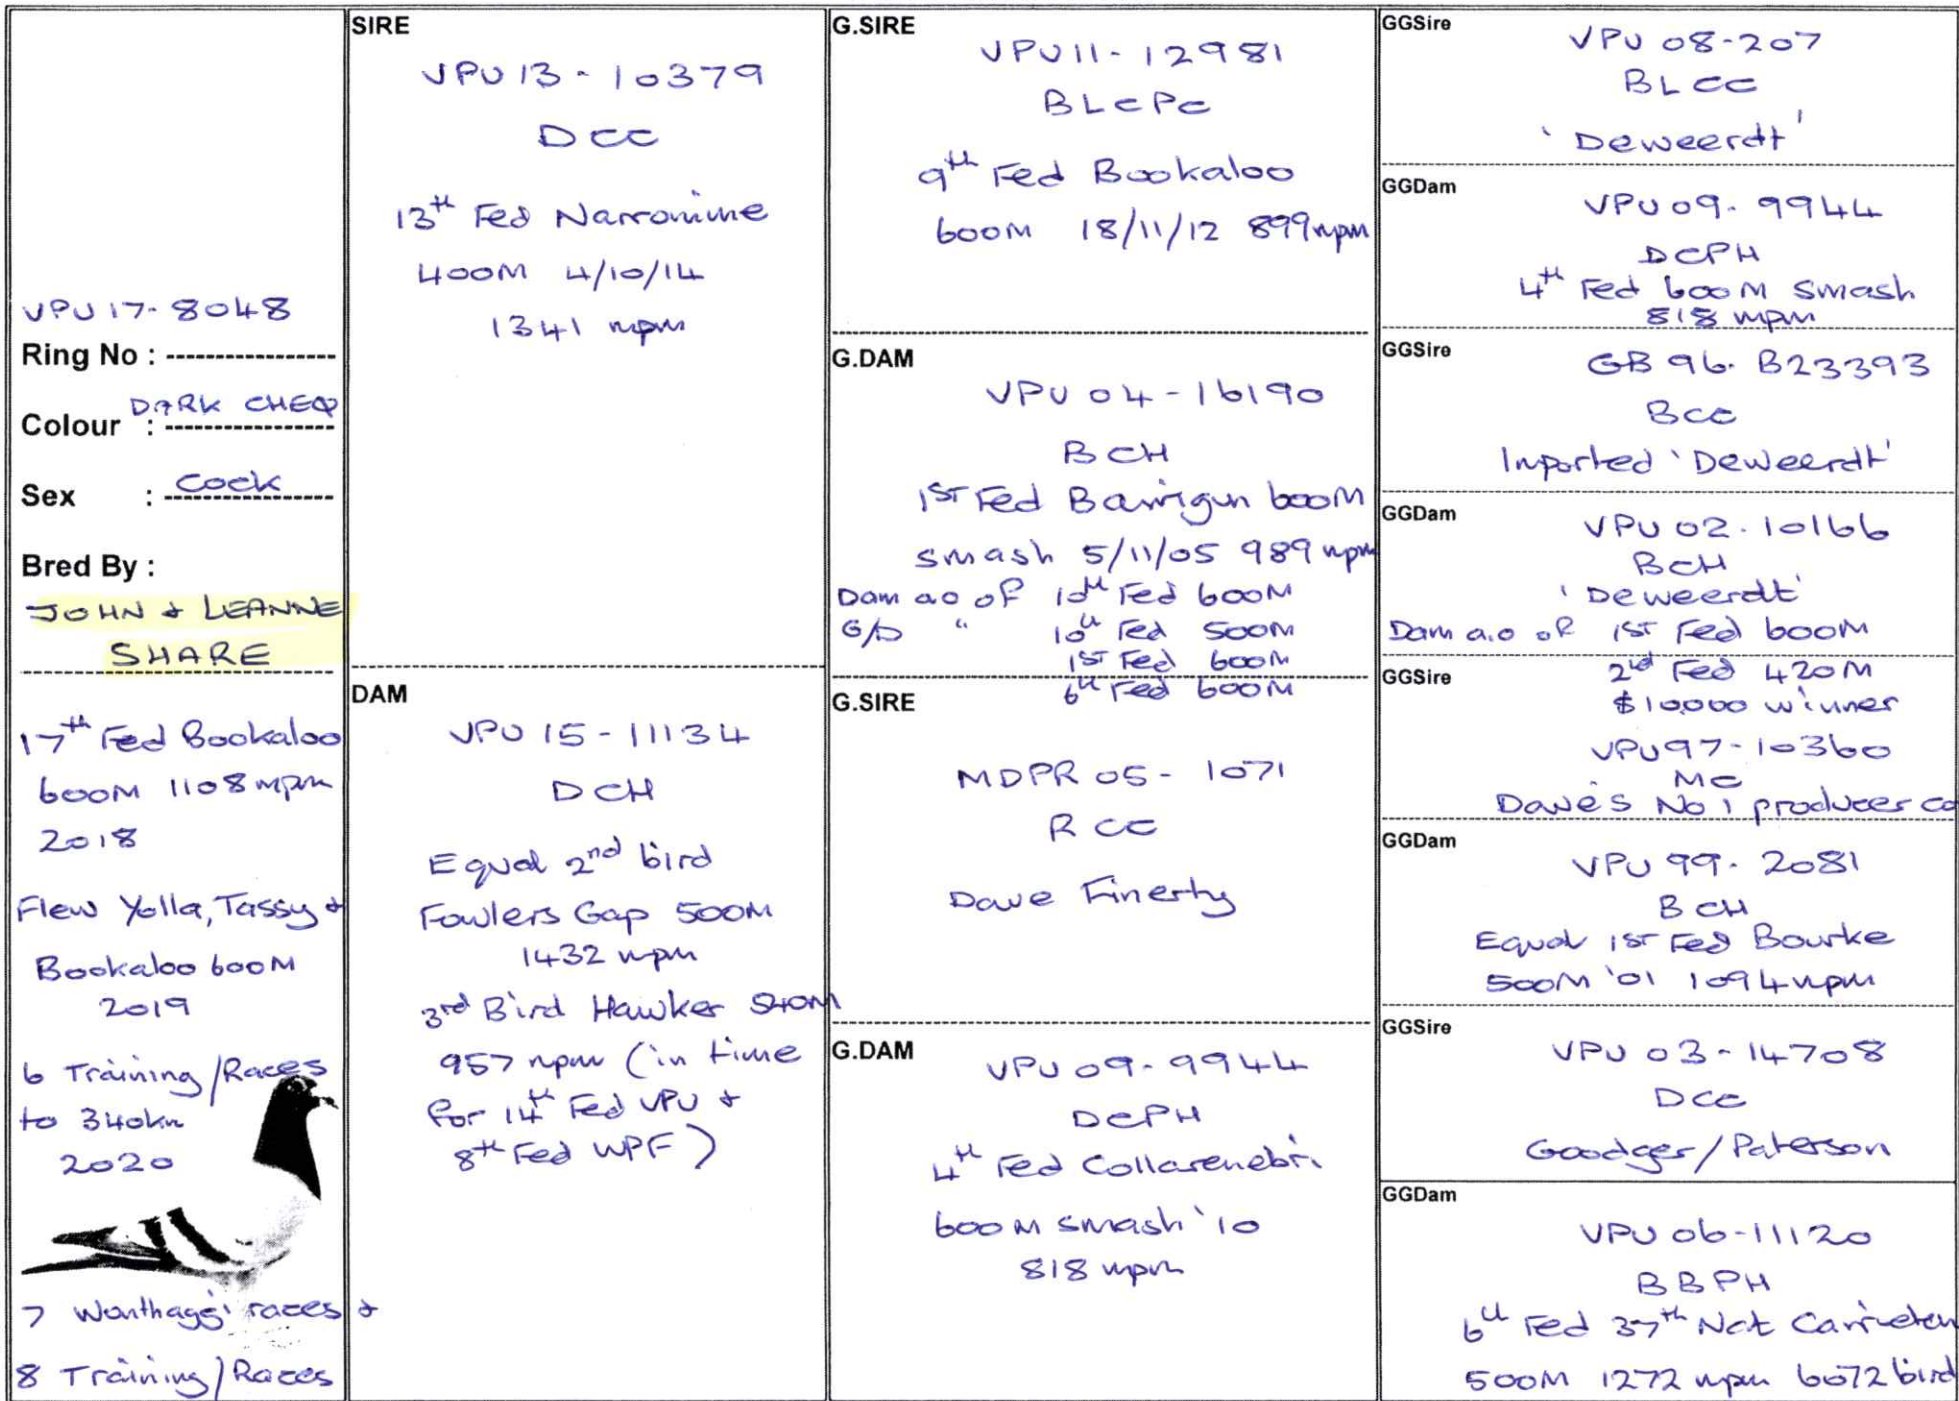 VPU 17-8048
Ring No :
DARK CHEQ
Colour :
Sex : Cock
Bred By :
JOHN & LEANNE
SHARE
17th Fed Bookaloo
600M 1108 mpm
2018
Flew Yolla, Tassy &
Bookaloo 600M
2019
6 Training/Races
to 340km
2020
7 Wonthaggi races &
8 Training/Races
SIRE
VPU 13-10379
DCC
13th Fed Narromine
400M 4/10/14
1341 mpm
DAM
VPU 15-11134
DCH
Equal 2nd bird
Fowlers Gap 500M
1432 mpm
3rd Bird Hawker 540M
957 mpm (in time
for 14th Fed VPU &
8th Fed WPF)
G.SIRE
VPU 11-12981
BLCPC
9th Fed Bookaloo
600M 18/11/12 899mpm
G.DAM
VPU 04-16190
BCH
1ST Fed Barrigun 600M
smash 5/11/05 989 mpm
Dam a o of 10th Fed 600M
G/D " 10th Fed 500M
1ST Fed 600M
6th Fed 600M
G.SIRE
MDPR 05-1071
RCC
Dave Finerty
G.DAM
VPU 09-9944
DCPH
4th Fed Collarenebri
600M smash '10
818 mpm
GGSire
VPU 08-207
BLCC
'Deweerdt'
GGDam
VPU 09-9944
DCPH
4th Fed 600M smash
818 mpm
GGSire
GB 96. B23393
BCC
Imported 'Deweerdt'
GGDam
VPU 02.10166
BCH
'Deweerdt'
Dam a.o of 1ST Fed 600M
2nd Fed 420M
$10,000 winner
GGSire
VPU 97-10360
MC
Dave's No 1 producer co
GGDam
VPU 99-2081
BCH
Equal 1ST Fed Bourke
500M '01 1094 mpm
GGSire
VPU 03-14708
DCC
Goodger/Paterson
GGDam
VPU 06-11120
BBPH
6th Fed 37th Nat Carrieton
500M 1272 mpm 6072 bird